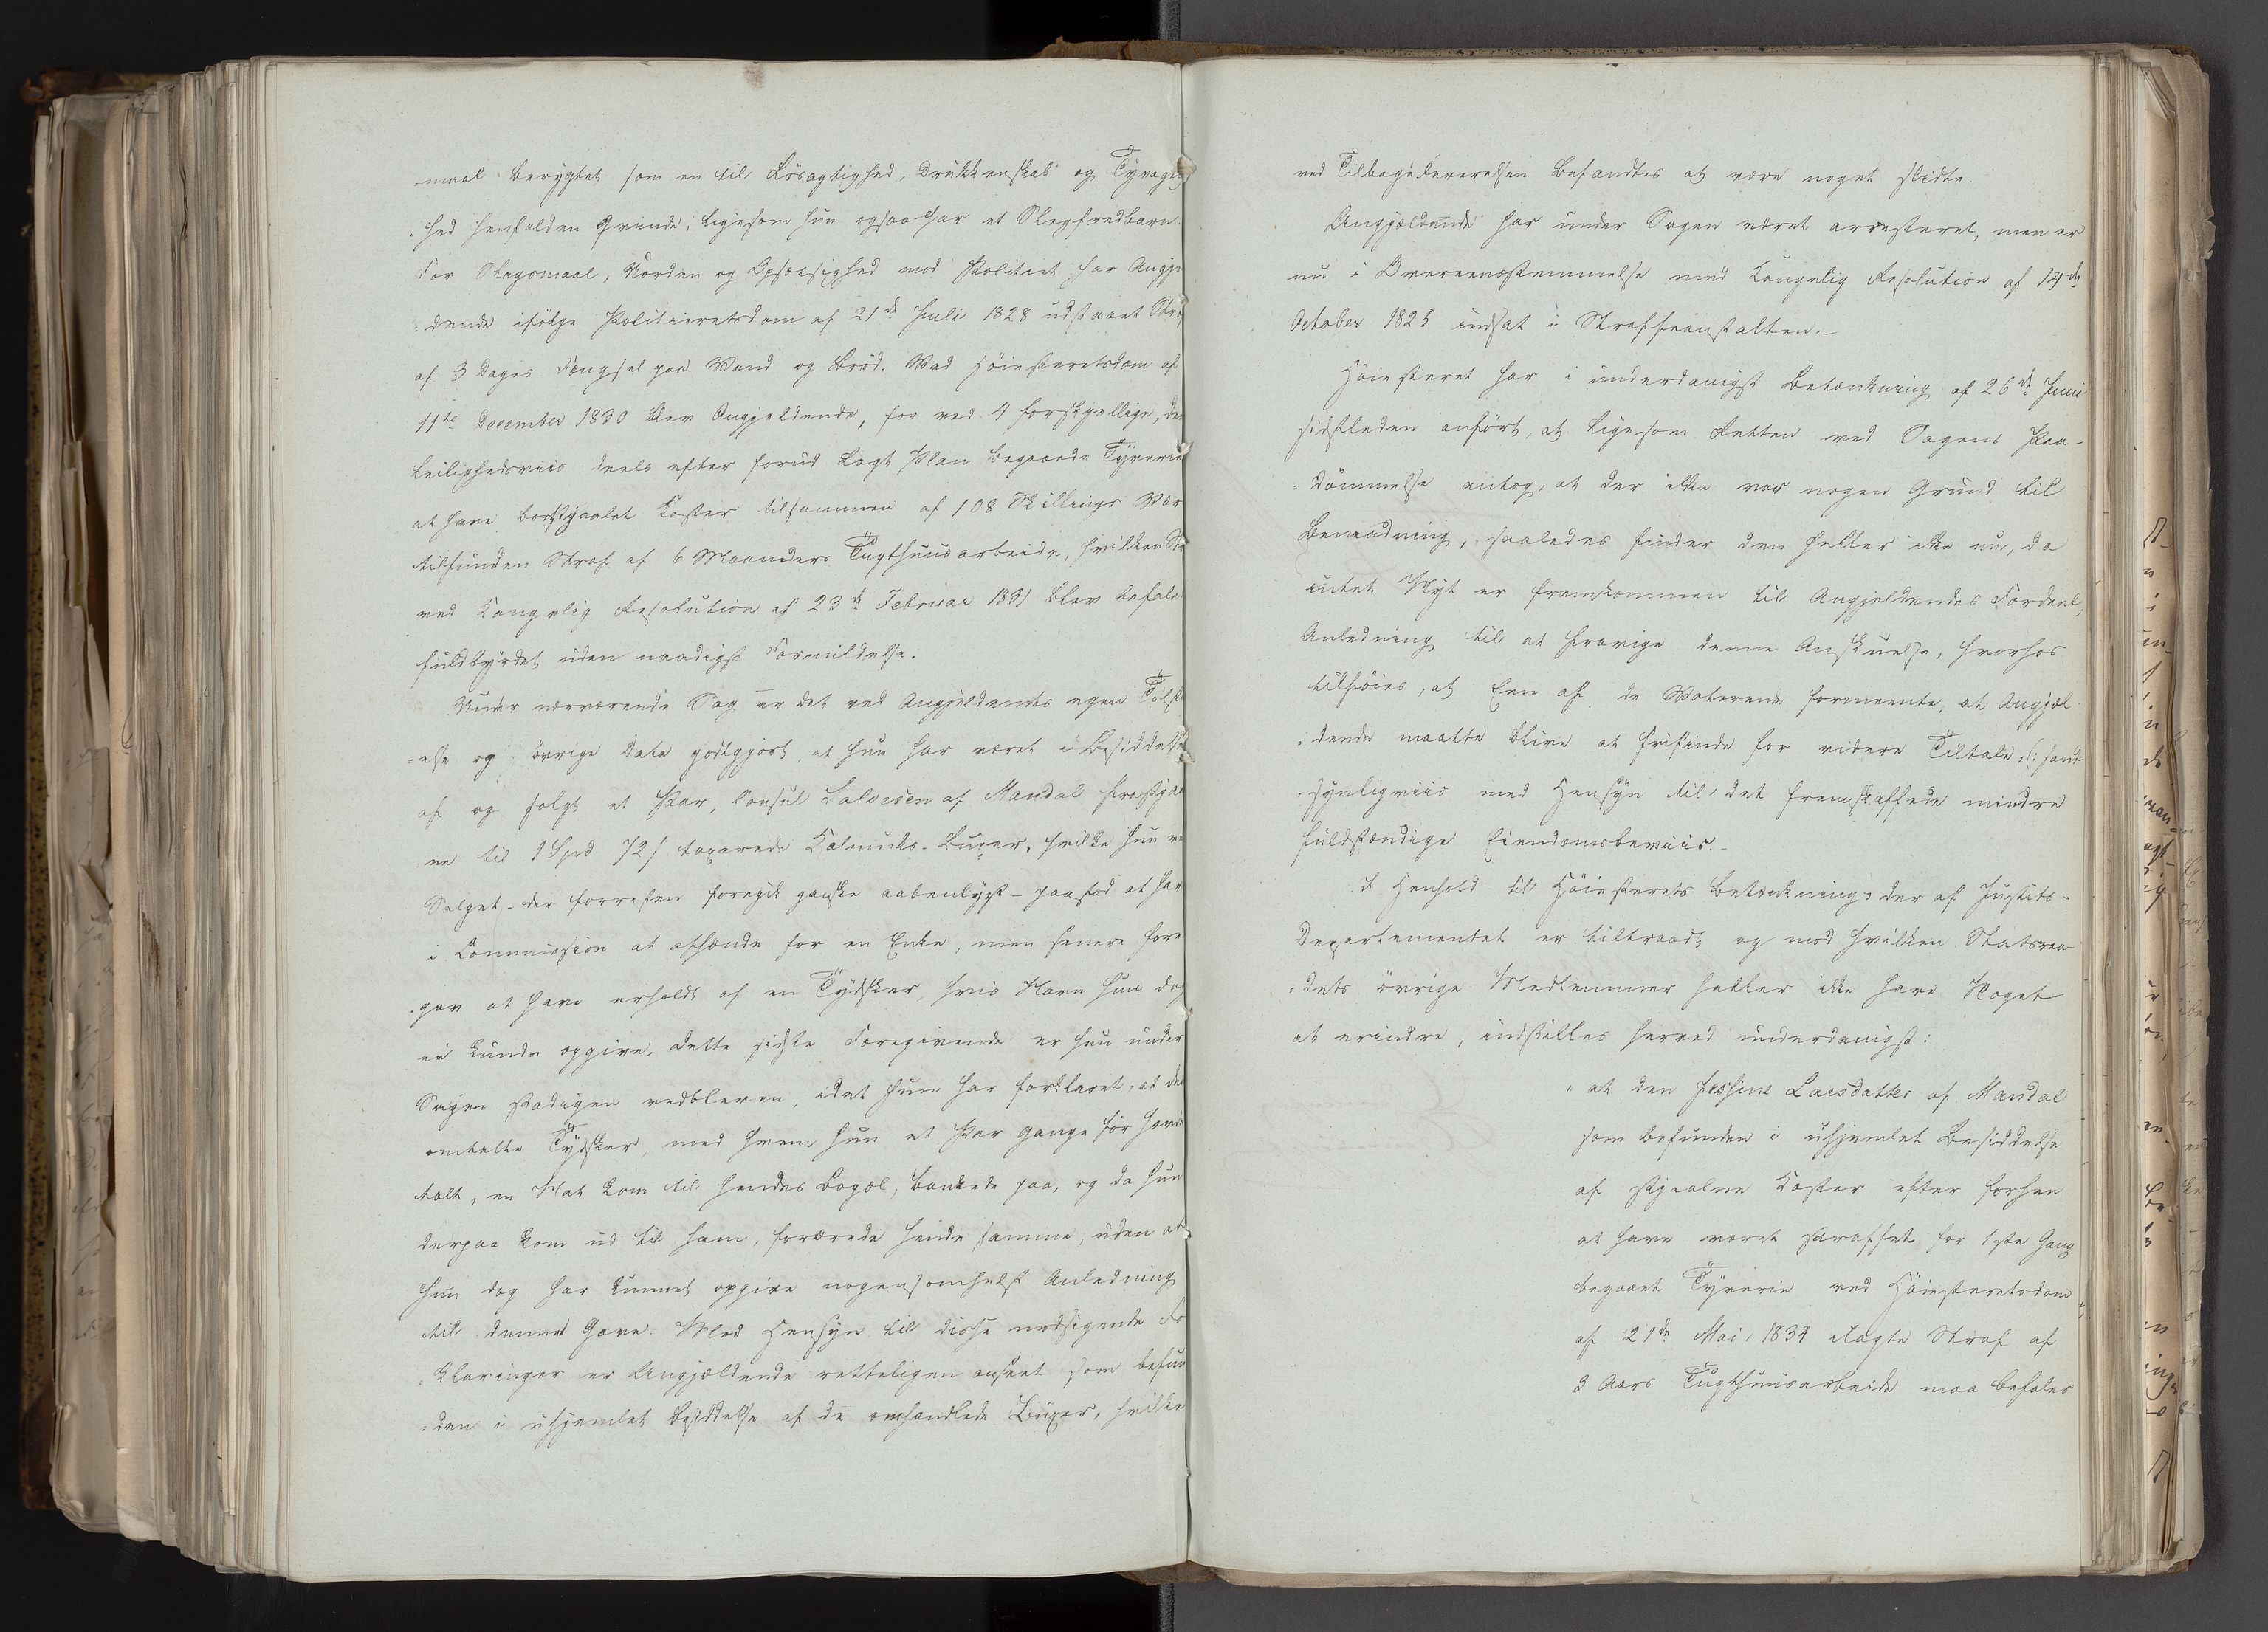 -maal berygtet som en til Lösagtighed, Drukkenskab og Tyvagtig
-hed henfalden Qvinde, ligesom hun ogsaa har et Slegfredbarn.
For Slagsmaal, Uorden og Opsætsighed mod Politiet har Angjel
-dende ifölge Politieretsdom af 21de Juli 1828 udstaaet Straf
af 3 Dages Fængsel paa Vand og Bröd. Ved Höiesteretsdom af
11te December 1830 blev Angjeldende, for ved 4 forskjellige, deels
leilighedsviis deels efter forud lagt Plan begaaede Tyverier
at have bortstjaalet Koster tilsammen af 108 Skillings Værd
tilfunden Straf af 6 Maaneders Tugthuusarbeide, hvilken Straf
ved Kongelig Resolution af 23de Februar 1831 blev befalet
fuldbyrdet uden naadigst Formildelse.
Under nærværende Sag er det ved Angjeldendes egen Tilstaa
-else og övrige Data godtgjort, at hun har været i Besiddelse
af og solgt et Par, Consul Salvesen af Mandal frastjaal
-ne til 1 Spd 72 s taxerede Kalmuks-Buxer, hvilke hun ved
Salget - der forresten foregik ganske aabenlyst - paastod at have
i Commission at afhænde for en Enke, men senere fore
-gav at have erholdt af en Tydsker, hvis Navn hun dog
ei kunde opgive. Dette sidste Foregivende er hun under
Sagen stadigen vedbleven, idet hun har forklaret, at den
omtalte Tydsker, med hvem hun et Par Gange för havde
talt, en Nat kom til hendes Logæl, bankede paa, og da hun
derpaa kom ud til ham, forærede hende samme, uden at
hun dog har kunnet opgive nogensomhelst Anledning
til denne Gave. Med Hensyn til disse modsigende For
-klaringer er Angjældende retteligen anseet som befun
-den i uhjemlet Besiddelse af de omhandlede Buxer, hvilke
ved Tilbageleverelsen befandtes at være noget slidte.
Angjældende har under Sagen været arresteret, men er
nu i Overeensstemmelse med Kongelig Resolution af 14de
October 1825 indsat i Straffeanstalten.-
Höiesteret har i underdanigst Betænkning af 26de Juni
sidstleden anfört, at ligesom Retten ved Sagens Paa-
-dömmelse antog, at der ikke var nogen Grund til
Benaadning, saaledes finder den heller ikke nu, da
intet Nyt er fremkommen til Angjeldendes Fordeel,
Anledning til at fravige denne Anskuelse, hvorhos
tilföies, at Een af de Voterende formeente, at Angjæl-
-dende maatte blive at frifinde for videre Tiltale, (: sand-
-synligviis med Hensyn til det fremskaffede mindre
fuldstændige Eiendomsbeviis.-
I Henhold til Höiesterets Betænkning, der af Justits-
Departementet er tiltraadt og mod hvilken Statsraa-
-dets övrige Medlemmer heller ikke have Noget
at erindre, indstilles herved underdanigst:
" at den Jessine Larsdatter af Mandal
som befunden i uhjemlet Besiddelse
af stjaalne Koster efter forhen
at have været straffet for 1ste Gang
begaaet Tyverie ved Höiesteretsdom
af 21de Mai 1834 ilagte Straf af
3 Aars Tugthuusarbeide maa befales